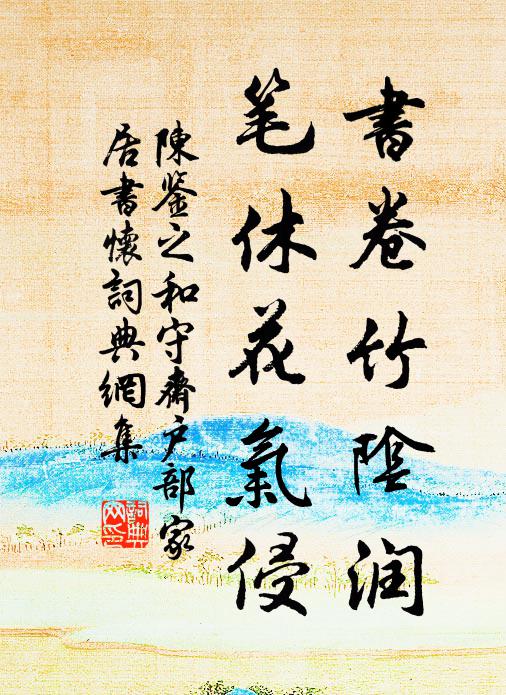 書卷竹陰润
笔休花氣侵
陳鉴之和守齋户部家
居書懷詞典網集
詞典
网印